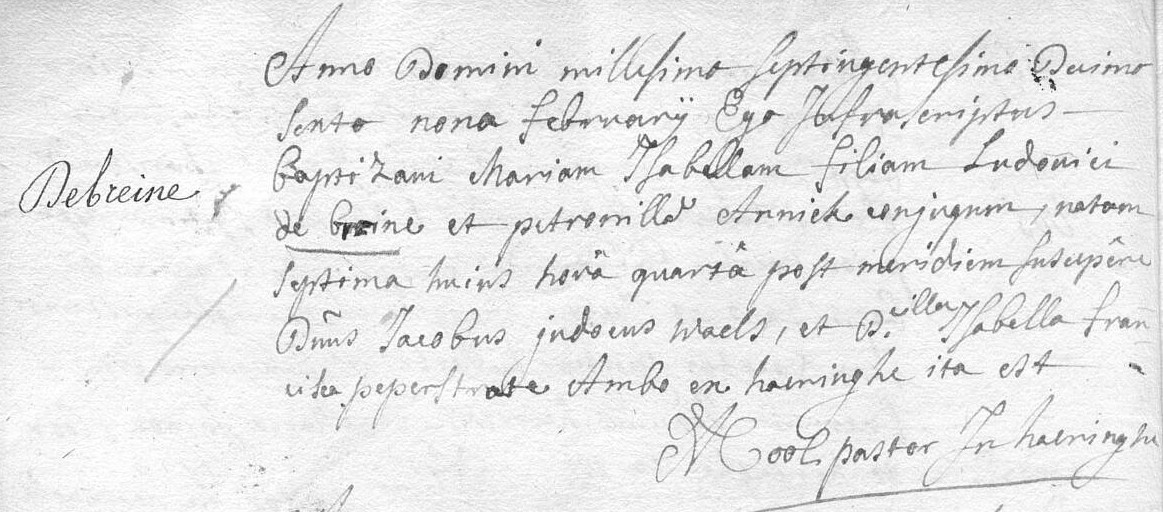 Anno Domini millesimo septingentesimo Decimo
sexto nona february Ego Infrascriptus
Debreine
baptizavi Mariam Isabellam filiam Ludovici
de breine et petronillæ Annick conjugum, natam
septima huius horâ quartâ post meridiem susceperê
Dnus Jacobus judocus waels, et D.cilla Isabella fran
cisca peperstrate Ambo ex haeringhe ita est
Mool pastor In haeringhe